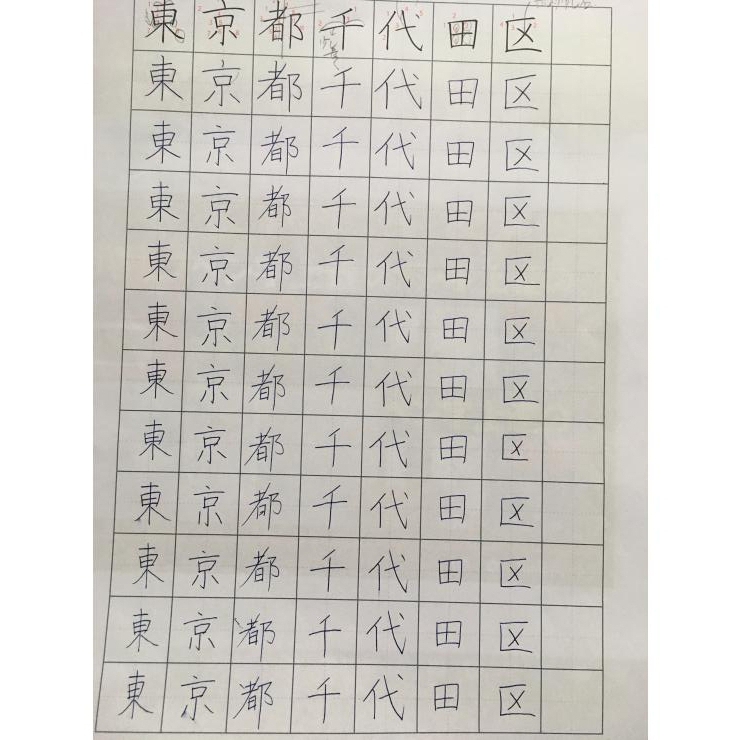 東京都千代田区
東京都千代田区
東京都千代田区
東京都千代田区
東京都千代田区
東京都千代田区
東京都千代田区
東京都千代田区
東京都千代田区
東京都千代田区
東京都千代田区
東京都千代田区